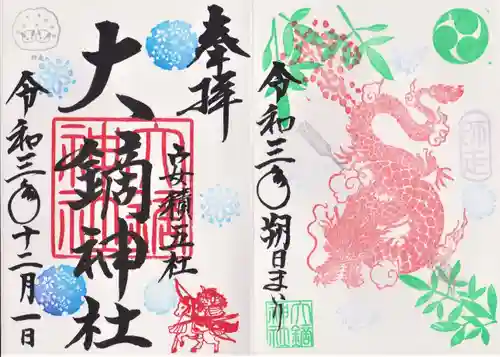 師走
令和三年 朔日まいり
大鏑神社
奉拝
安積五社
大鏑神社
大鏑神社
令和三年十二月一日